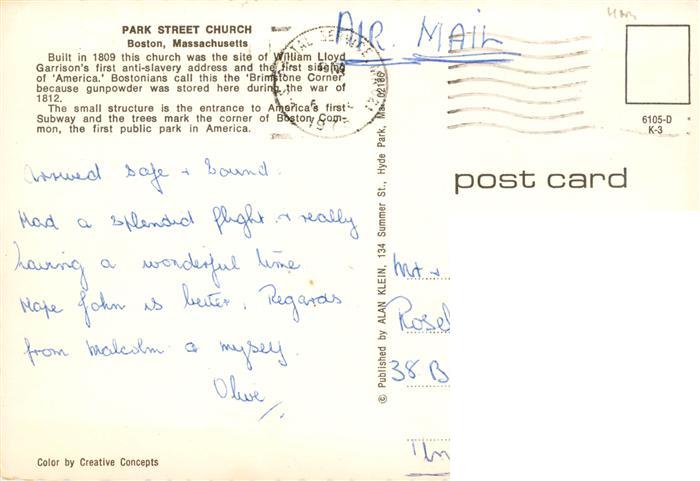 PARK STREET CHURCH
Boston, Massachusetts
Built in 1809 this church was the site of William Lloyd
Garrison's first anti-slavery address and the first singing
of 'America.' Bostonians call this the 'Brimstone Corner'
because gunpowder was stored here during the war of
1812.
The small structure is the entrance to America's first
Subway and the trees mark the corner of Boston Com-
mon, the first public park in America.
AIR MAIL
6105-D
K-3
post card
Arrived safe + sound.
Had a splendid flight + really
having a wonderful time
Hope John is better. Regards
from Malcolm & myself.
Olive
© Published by ALAN KLEIN, 134 Summer St., Hyde Park, Ma. 02136
Mr +
Rosel
38 B
Color by Creative Concepts